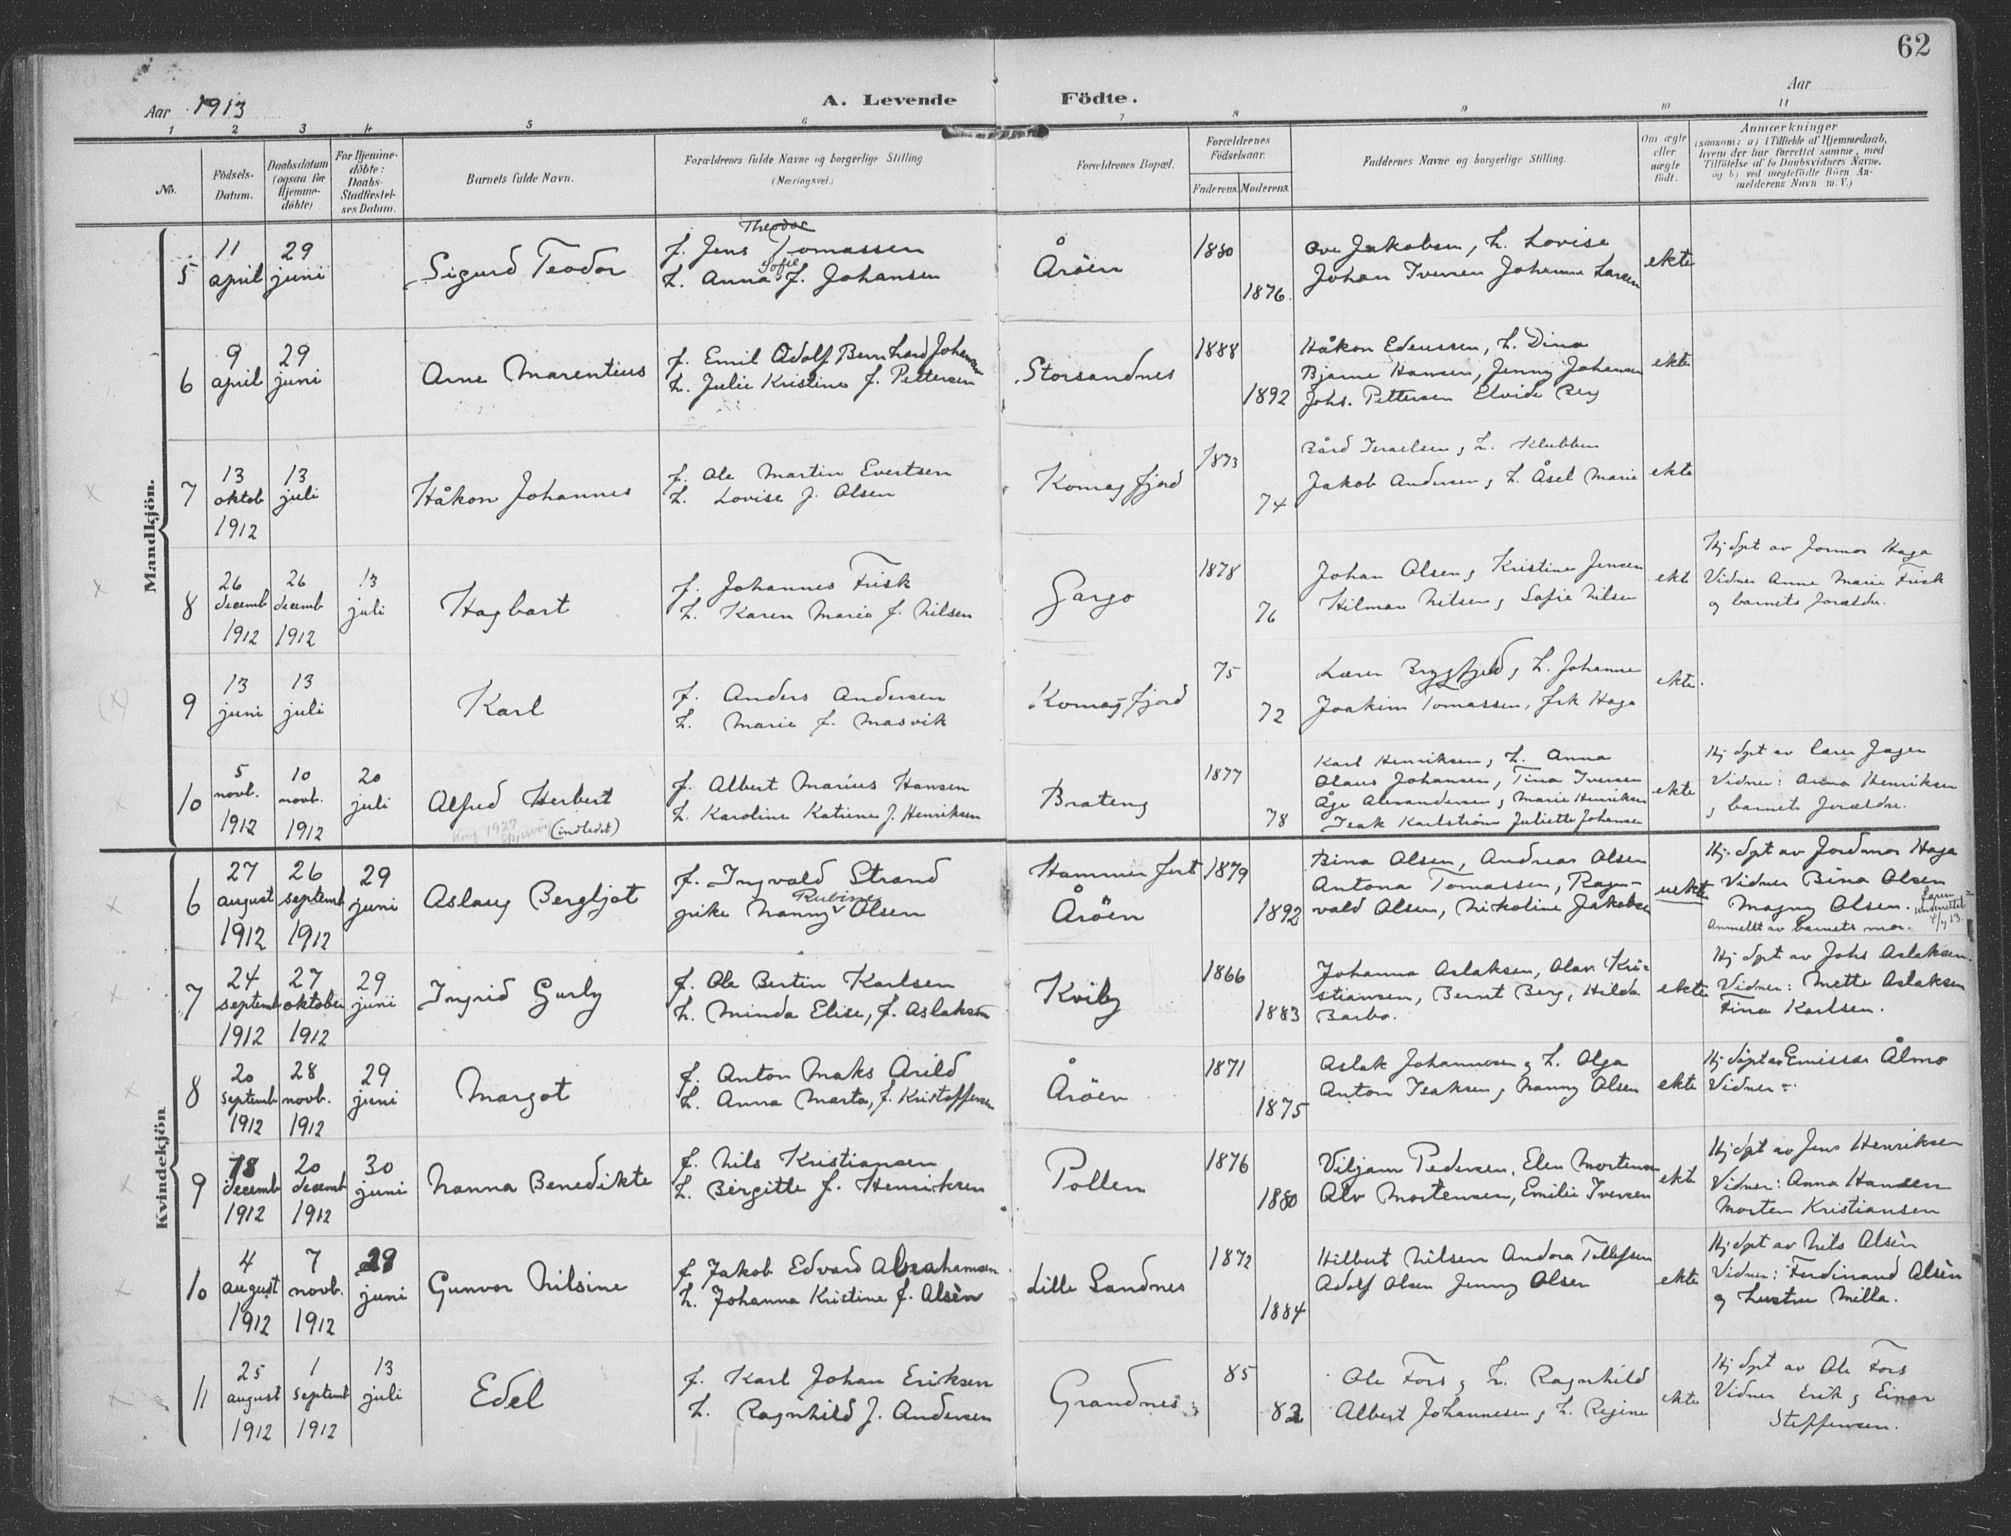 62
Aar 1913
A. Levende Födte.
Aar
1 2 3 4 5 6 7 8 9 10 11
No.
Födsels-Datum.
Daabsdatum (ogsaa for Hjemme-döbte)
For Hjemme-döbte: Daabs-Stadfæstel-ses Datum.
Barnets fulde Navn.
Forældrenes fulde Navne og borgerlige Stilling (Næringsvei.)
Forældrenes Bopæl.
Forældrenes Födselsaar.
Faderens. Moderens.
Faddernes Navne og borgerlige Stilling.
Om ægte eller uægte födt.
Anmærkninger
(saasom: a) i Tilfælde af Hjemmedaab, hvem der har forrettet samme, med Tilföielse af to Daabsvidners Navne, og b) ved uægtefödte Börn An-melderens Navn m. V.)
Mandkjön.
5
11 april
29 juni
Sigurd Teodor
f. Jens Theodor Tomassen
h. Anna Sofie f. Johansen
Åröen
1880
1876.
Ove Jakobsen, h. Lovise
Johan Iversen Johanne Larsen
ekte
6
9 april
29 juni
Arne Marentius
f. Emil Adolf Bernhard Johansen
h. Julie Kristine f. Pettersen
Storsandnes
1888
1892
Håkon Edenssen, h. Dina
Bjarne Hansen, Jenny Johansen
Johs. Pettersen Elvide Berg
ekte
7
13 oktob 1912
13 juli
Håkon Johannes
f. Ole Martin Evertsen
h. Lovise f. Olsen
Komagfjord
1873
74
Bård Israelsen, h. Klubben
Jakob Andersen, h. Åsel Marie
ekte
8
26 decemb 1912
26 decemb 1912
13 juli
Hagbart
f. Johannes Frisk
h. Karen Marie f. Nilsen
Gargo
1878
76
Johan Olsen, Kristine Jensen
Hilmar Nilsen, Sofie Nilsen
ekte
Hj döpt av Jormor Haga
Vidner Anne Marie Frisk
og barnets forældre.
9
13 juni
13 juli
Karl
f. Anders Andersen
h. Marie f. Masvik
Komagfjord
75
72
Lærer Bryggfjeld, h. Johanne
Joakim Tomassen, frk Haga
ekte.
10
5 novb. 1912
10 novb. 1912
20 juli
Alfred Herbert
(indledet)
f. Albert Marius Hansen
h. Karoline Katrine f. Henriksen
Brateng
1877
78
Karl Henriksen, h. Anna
Olaus Johansen, Tina Iversen
Åge Alexandersen, Marie Henriksen
Isak Karlström Juliette Johansen
ekte
Hj döpt av lærer Jager
Vidner: Anna Henriksen
og barnets forældre.
Kvindekjön
6
27 august 1912
26 septemb 1912
29 juni
Aslaug Bergljot
f. Ingvald Strand
pike Nanny Rubine Olsen
Hammerfest
Åröen
1879
1892
Bina Olsen, Andreas Olsen
Antona Tomassen, Ragn-
vald Olsen, Nikoline Jakobsen
uekte
Hj. döpt av Jordmor Haga
Vidner Bina Olsen
Magny Olsen.
Anmeldt av barnets mor.
7
24 septemb 1912
27 oktober 1912
29 juni
Ingrid Gurly
f. Ole Bertin Karlsen
h. Minda Elise, f. Aslaksen
Kviby
1866
1883
Johanna Aslaksen, Olav Kri-
stiansen, Bernt Berg, Hilda
Barbo.
ekte
Hj döpt av Johs Aslaksen.
Vidner: Mette Aslaksen
Tina Karlsen.
8
20 septemb 1912
28 novb. 1912
29 juni
Margot
f. Anton Maks Arild
h. Anna Marta, f. Kristoffersen
Åröen
1871
1875
Aslak Johannesen, h. Olga
Anton Isaksen, Nanny Olsen
ekte
Hj döpt av Emissær Ålmo
Vidner ÷
9
18 decemb 1912
20 decemb 1912
30 juni
Nanna Benedikte
f. Nils Kristiansen
h. Birgitte f. Henriksen
Pollen
1876
1880
Viljam Pedersen, Elen Mortensen
Alv Mortensen, Emilie Iversen
ekte
Hj döpt av Jens Henriksen
Vidner: Anna Hansen
Morten Kristiansen
10
4 august 1912
7 novb. 1912
29 juni
Gunvor Nilsine
f. Jakob Edvard Abrahamsen
h. Johanna Kristine f. Alsèn
Lille Sandnes
1872
1884
Hilbert Nilsen Andora Tollefsen
Adolf Olsen Jenny Olsen
ekte
Hj döpt av Nils Alsèn
Vidner: Ferdinand Alsèn
og hustru Milla.
11
25 august 1912
1 septemb 1912
13 juli
Edel
f. Karl Johan Eriksen
h. Ragnhild f. Andersen
Grandnes
85
82
Ole Fors, h. Ragnhild
Albert Johannesen, h. Regine
ekte
Hj döpt av Ole Fors
Vidner Erik og Einar
Steffensen.